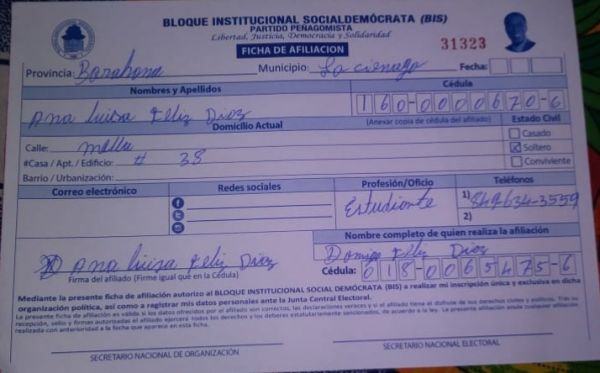 BLOQUE INSTITUCIONAL SOCIALDEMÓCRATA (BIS)
PARTIDO PEÑAGOMISTA
Libertad, Justicia, Democracia y Solidaridad
FICHA DE AFILIACION
31323
Provincia: Barahona Municipio: La cienaga Fecha:
Nombres y Apellidos Cédula
Ana luisa Feliz Diaz 160-0000670-6
Domicilio Actual (Anexar copia de cédula del afiliado) Estado Civil
Calle: mella Casado
#Casa / Apt. / Edificio: # 38 Soltero
Barrio / Urbanización: Conviviente
Correo electrónico Redes sociales Profesión/Oficio Teléfonos
Estudiante 1) 849-634-3559
2)
Nombre completo de quien realiza la afiliación
Ana luisa Feliz Diaz Feliz Diaz
Firma del afiliado (Firme igual que en la Cédula) Cédula: 018-0065475-6
Mediante la presente ficha de afiliación autorizo al BLOQUE INSTITUCIONAL SOCIAL DEMÓCRATA (BIS) a realizar mi inscripción única y exclusiva en dicha
organización política, así como a registrar mis datos personales ante la Junta Central Electoral.
La presente ficha de afiliación es válida si los datos ofrecidos por el afiliado son correctos, las declaraciones veraces y si el afiliado tiene el disfrute de sus derechos civiles y políticos. Tras su
recepción, sello y firmas autorizadas el afiliado ejercerá todos los derechos y los deberes estatutariamente sancionados, de acuerdo a la ley. La presente afiliación anula cualquier afiliación
realizada con anterioridad a la fecha que aparece en esta ficha.
SECRETARIO NACIONAL DE ORGANIZACIÓN SECRETARIO NACIONAL ELECTORAL